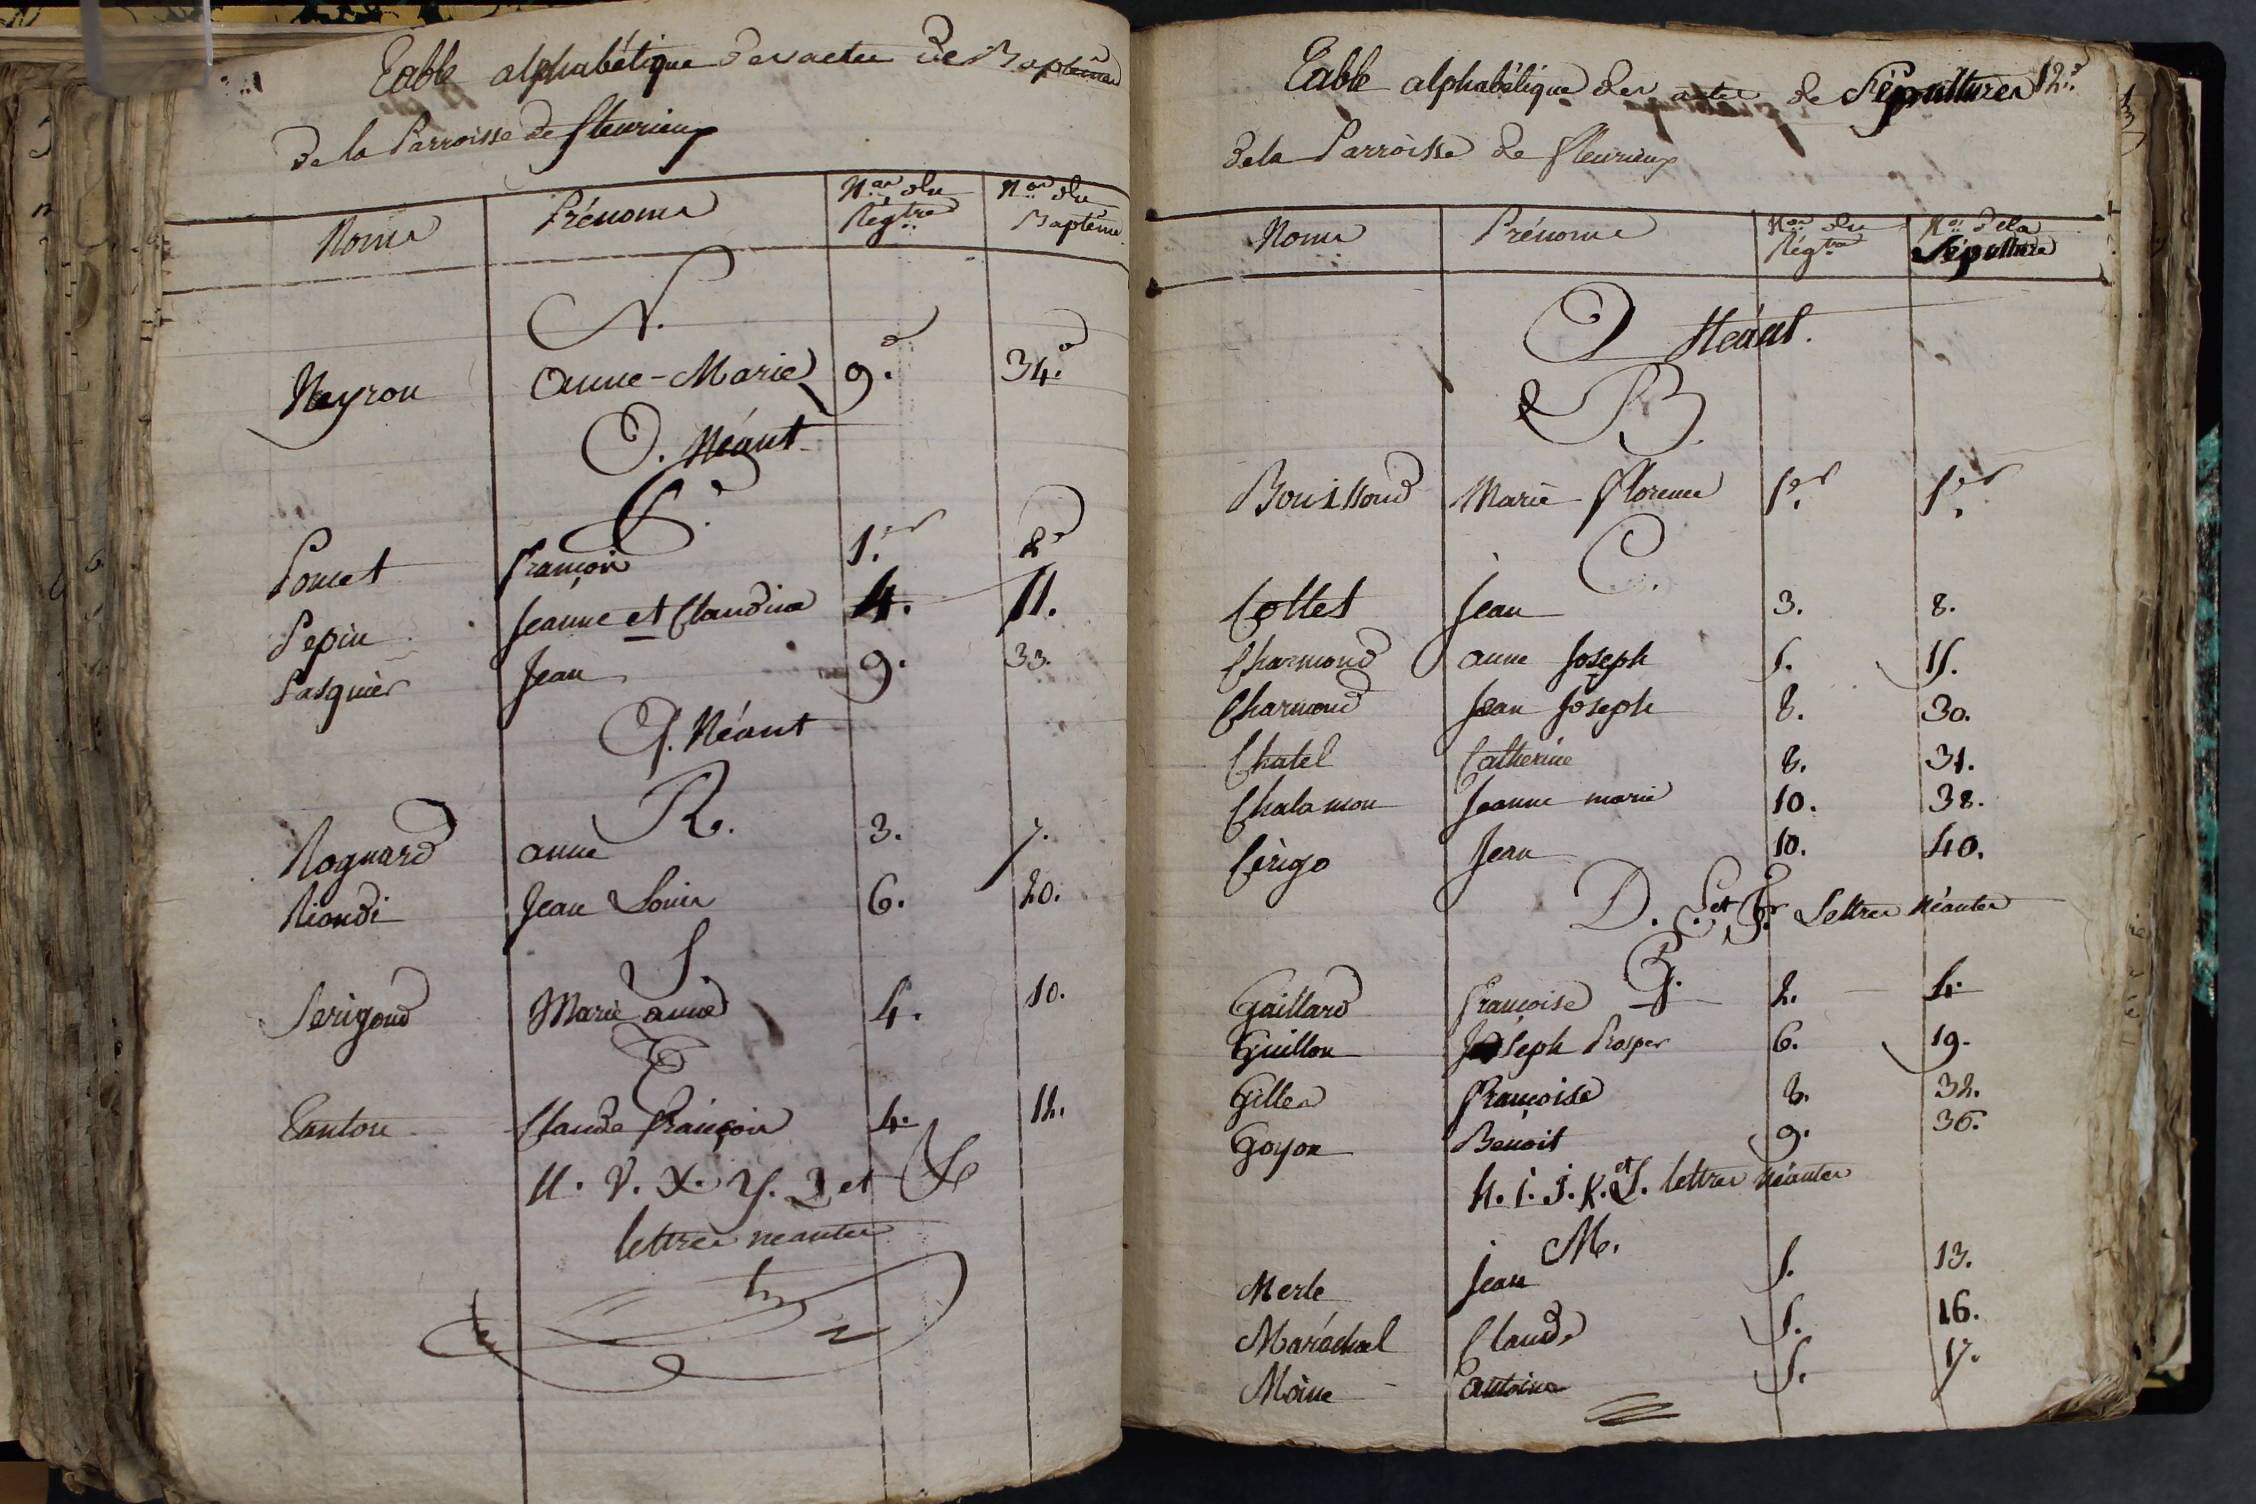 Table alphabétique des actes de Baptêmes
de la Parroisse de fleurieux
Noms Prénoms N.os du Régtre N.os du Baptême
N.
Neyron anne-Marie 9.e 34.e
O. Néant
P.
Poncet françois 1.er 2e
Pepin Jeanne et Claudine 4. 11.
Pasquier Jean 9. 33.
Q. Néant
R.
Rognard anne 3. 7.
Riondi Jean Louis 6. 20.
S.
Serigoud Marie anne 4. 10.
T
Tanton Claude françois 4. 12.
U. V. X. Y. Z et &
lettres neantes
Table alphabétique des actes de Sépultures 12.e
de la Parroisse de fleurieux
Noms Prénoms N.os du Régtre N.os de la Sépulture
Néant.
B.
Bouissoud Marie florence 1.er 1.er
C.
Collet Jean 3. 8.
Charmond anne Joseph 5. 15.
Charmond Jean Joseph 8. 30.
Chatel Catherine 8. 31.
Chalamon Jeanne marie 10. 38.
Cerigo Jean 10. 40.
D. E et F. Lettres néantes
G.
Gaillard françoise 2. 4.
Guillon Joseph Prosper 6. 19.
Gilles françoise 8. 32.
Goyon Benoit 9. 36.
h. i. J. K. et L. lettres néantes
M.
Merle Jean 5. 13.
Maréchal Claude 5. 16.
Moine antoine 5. 17.